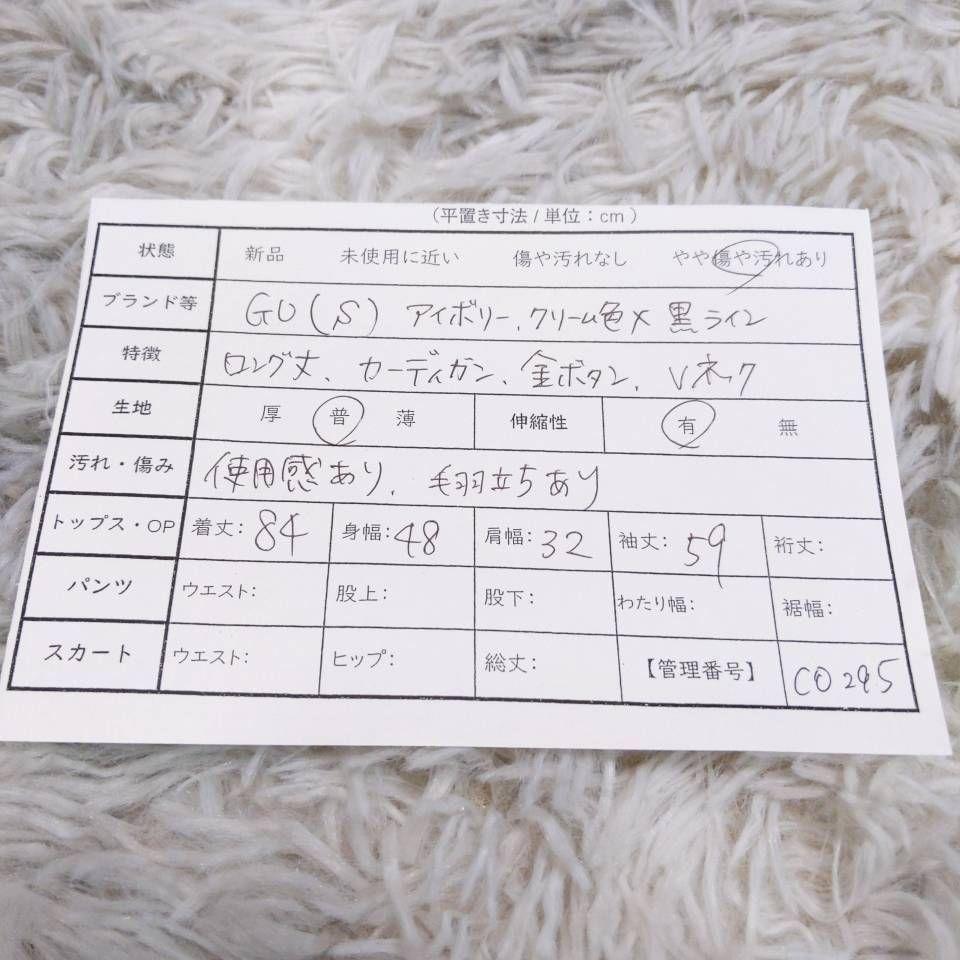 （平置き寸法 / 単位：cm）
状態 新品 未使用に近い 傷や汚れなし やや傷や汚れあり
ブランド等 GU(S) アイボリー、クリーム色×黒ライン
特徴 ロング丈、カーディガン、金ボタン、Vネック
生地 厚 普 薄 伸縮性 有 無
汚れ・傷み 使用感あり、毛羽立ちあり
トップス・OP 着丈：84 身幅：48 肩幅：32 袖丈：59 裄丈：
パンツ ウエスト： 股上： 股下： わたり幅： 裾幅：
スカート ウエスト： ヒップ： 総丈： 【管理番号】 CO295